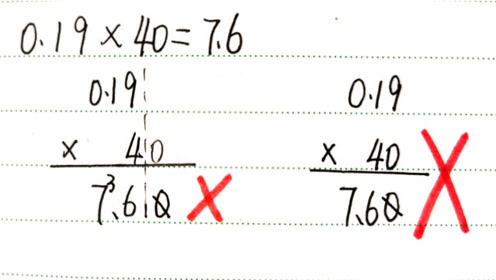 0.19×40=7.6
0.19 0.19
× 40 × 40
7.60 7.60